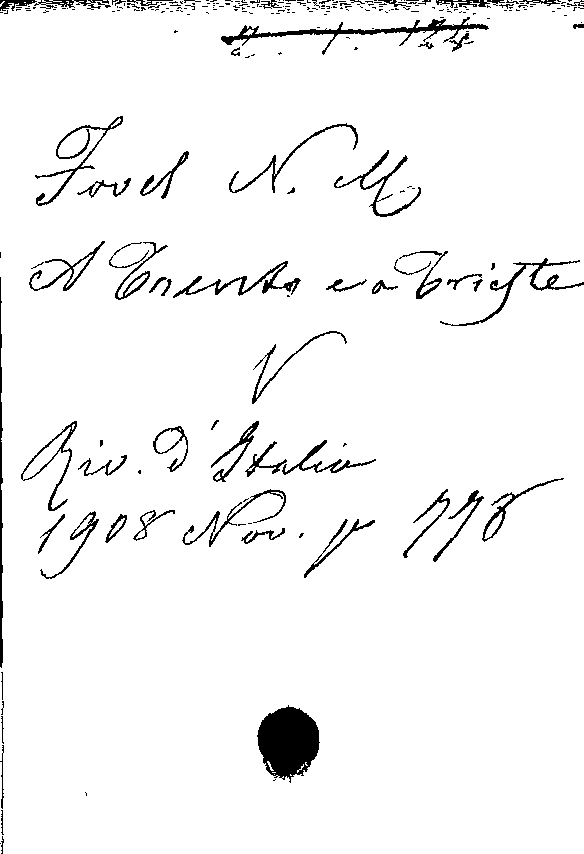 Fovel N. M
A Trento e a Trieste
V
Riv. D'Italia
1908 Nov. p 778